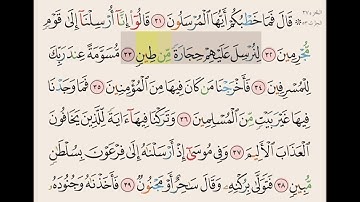 الجزء ٢٧
الحزب ٥٣
۞ قَالَ فَمَا خَطْبُكُمْ أَيُّهَا الْمُرْسَلُونَ ٣١ قَالُوا إِنَّا أُرْسِلْنَا إِلَىٰ قَوْمٍ
مُّجْرِمِينَ ٣٢ لِنُرْسِلَ عَلَيْهِمْ حِجَارَةً مِّن طِينٍ ٣٣ مُّسَوَّمَةً عِندَ رَبِّكَ
لِلْمُسْرِفِينَ ٣٤ فَأَخْرَجْنَا مَن كَانَ فِيهَا مِنَ الْمُؤْمِنِينَ ٣٥ فَمَا وَجَدْنَا
فِيهَا غَيْرَ بَيْتٍ مِّنَ الْمُسْلِمِينَ ٣٦ وَتَرَكْنَا فِيهَا ءَايَةً لِّلَّذِينَ يَخَافُونَ
الْعَذَابَ الْأَلِيمَ ٣٧ وَفِي مُوسَىٰ إِذْ أَرْسَلْنَٰهُ إِلَىٰ فِرْعَوْنَ بِسُلْطَٰنٍ
مُّبِينٍ ٣٨ فَتَوَلَّىٰ بِرُكْنِهِ وَقَالَ سَٰحِرٌ أَوْ مَجْنُونٌ ٣٩ فَأَخَذْنَٰهُ وَجُنُودَهُ